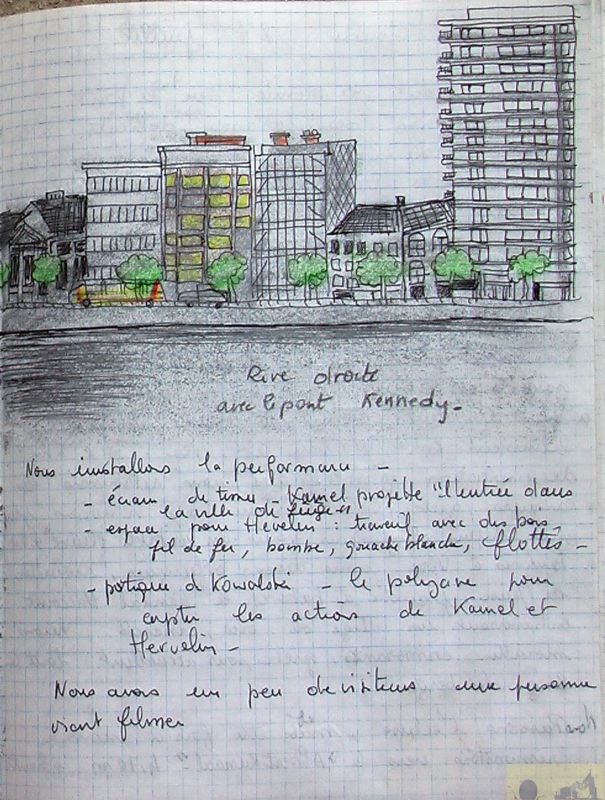 Rive droite
avec le pont Kennedy -
Nous installons la performance -
- écran de - Kamel projette "l'entrée dans
la ville de Liège"
- espace pour Hervelin : travail avec des bois
fil de fer, bombe, gouache blanche, flottés -
- de Kowalski - le pour
capter les actions de Kamel et
Hervelin -
Nous avons un peu de visiteurs une personne
vient filmer